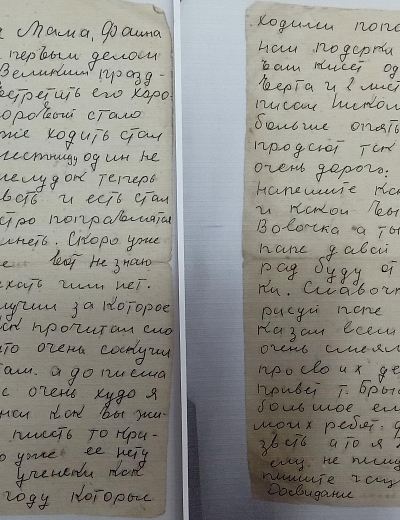 Мама, Фаина
первым делом
Великим празд-
встретить его хоро-
здоровый стало
уже ходить стал
лестницу один не
желудок теперь
и есть стал
быстро поправлятся
Скоро уже
е вот не знаю
ехать или нет.
получил за которое
как прочитал сло
что очень соскучил
там. а до письма
с очень худо я
как вы жи-
писть то кри-
о уже ее нету
ученски как
году которые
ходили пого
нам подерки
вам кисет од
черта и 2 лист
писал
больше опять
продают так
очень дорого.
напешите как
и какой
Вовочка а ты
папе давай
рад буду от
ки. Славочк
рисуй папе
казал всем
очень смеял
про своих де
привет т.
большое
моих ребят.
звесть а то я
ему не пишу
пишите
Досвидание